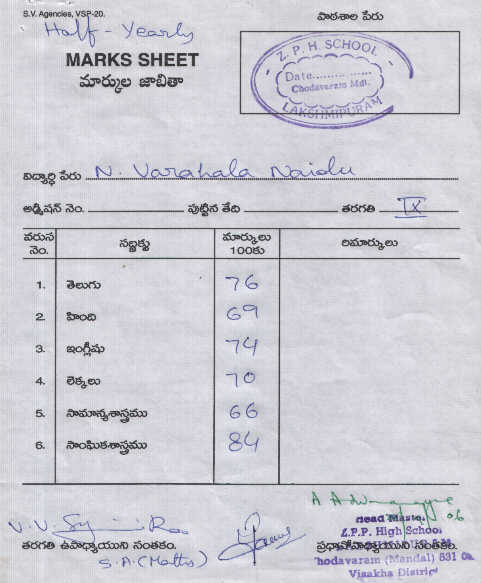 S.V. Agencies, VSP-20.
Half - Yearly
MARKS SHEET
మార్కుల జాబితా
పాఠశాల పేరు
Z. P. H. SCHOOL
Date...............
Chodavaram Mdl.
LAKSHMIPURAM
విద్యార్థి పేరు N. Varahala Naidu
అడ్మిషన్ నెం. పుట్టిన తేది తరగతి IX
వరుస నెం. సబ్జక్టు మార్కులు 100కు రిమార్కులు
1. తెలుగు 76
2. హింది 69
3. ఇంగ్లీషు 74
4. లెక్కలు 70
5. సామాన్యశాస్త్రము 66
6. సాంఘికశాస్త్రము 84
Head Maste
Z.P.P. High School
తరగతి ఉపాధ్యాయుని సంతకం. ప్రధానోపాధ్యాయుని సంతకం.
S.A (Maths)
hodavaram (Mandal) 531 0
Visakha District